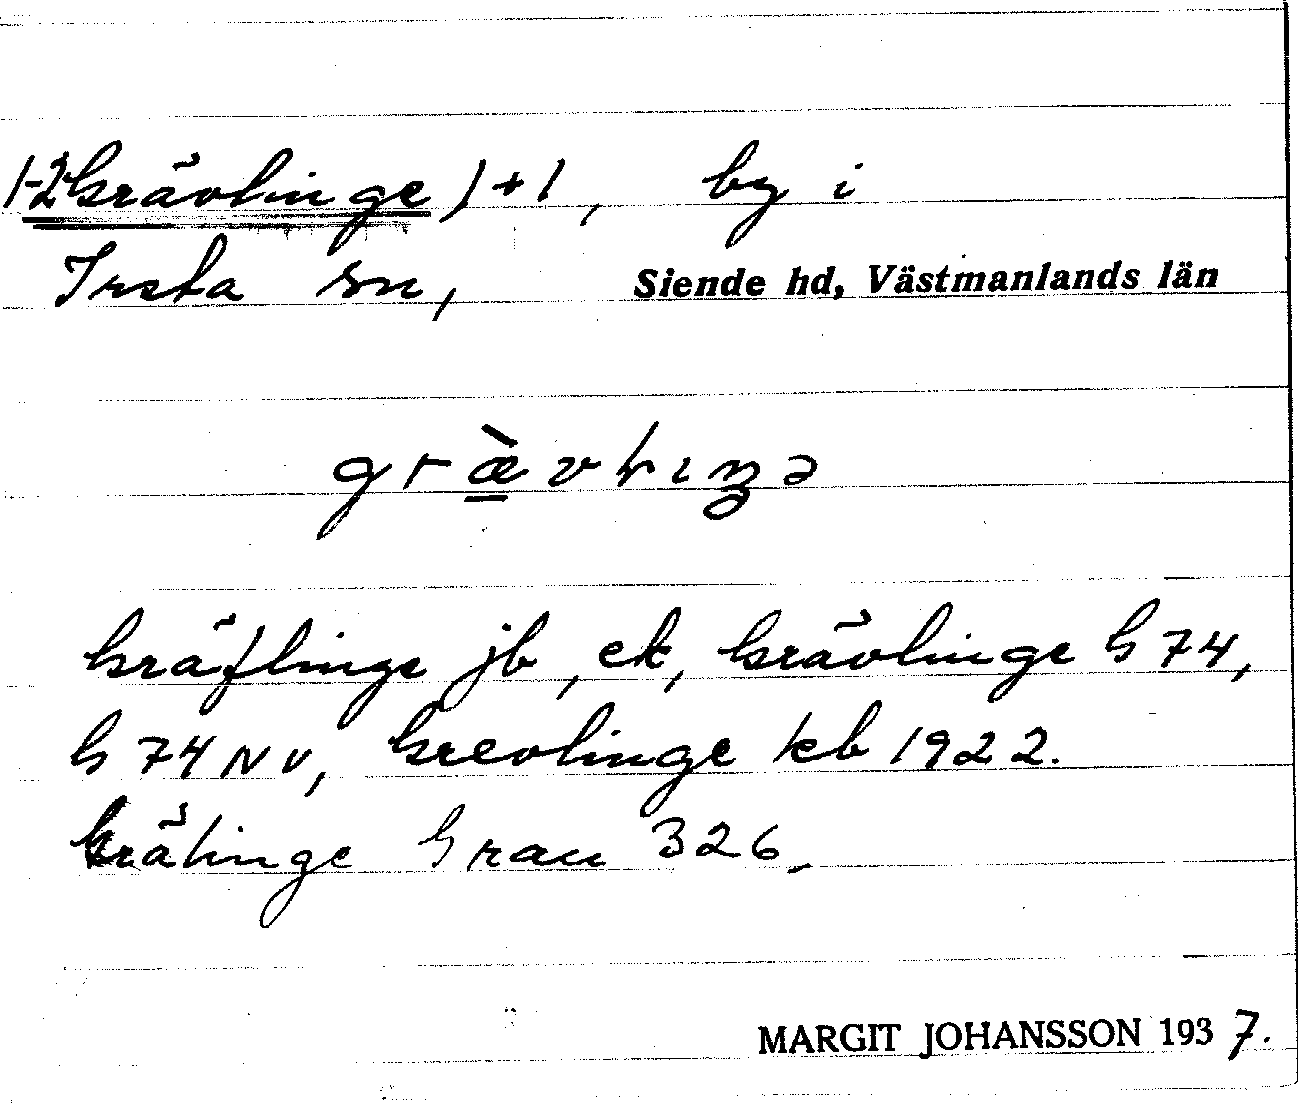 1-2 Grävlinge 1+1, by i
Irsta sn, Siende hd, Västmanlands län
græ̱̀vlɩŋə
Gräflinge jb, ek, Grävlinge G 74,
G 74 NV, Grevlinge kb 1922.
Grälinge Grau 326.
MARGIT JOHANSSON 1937.